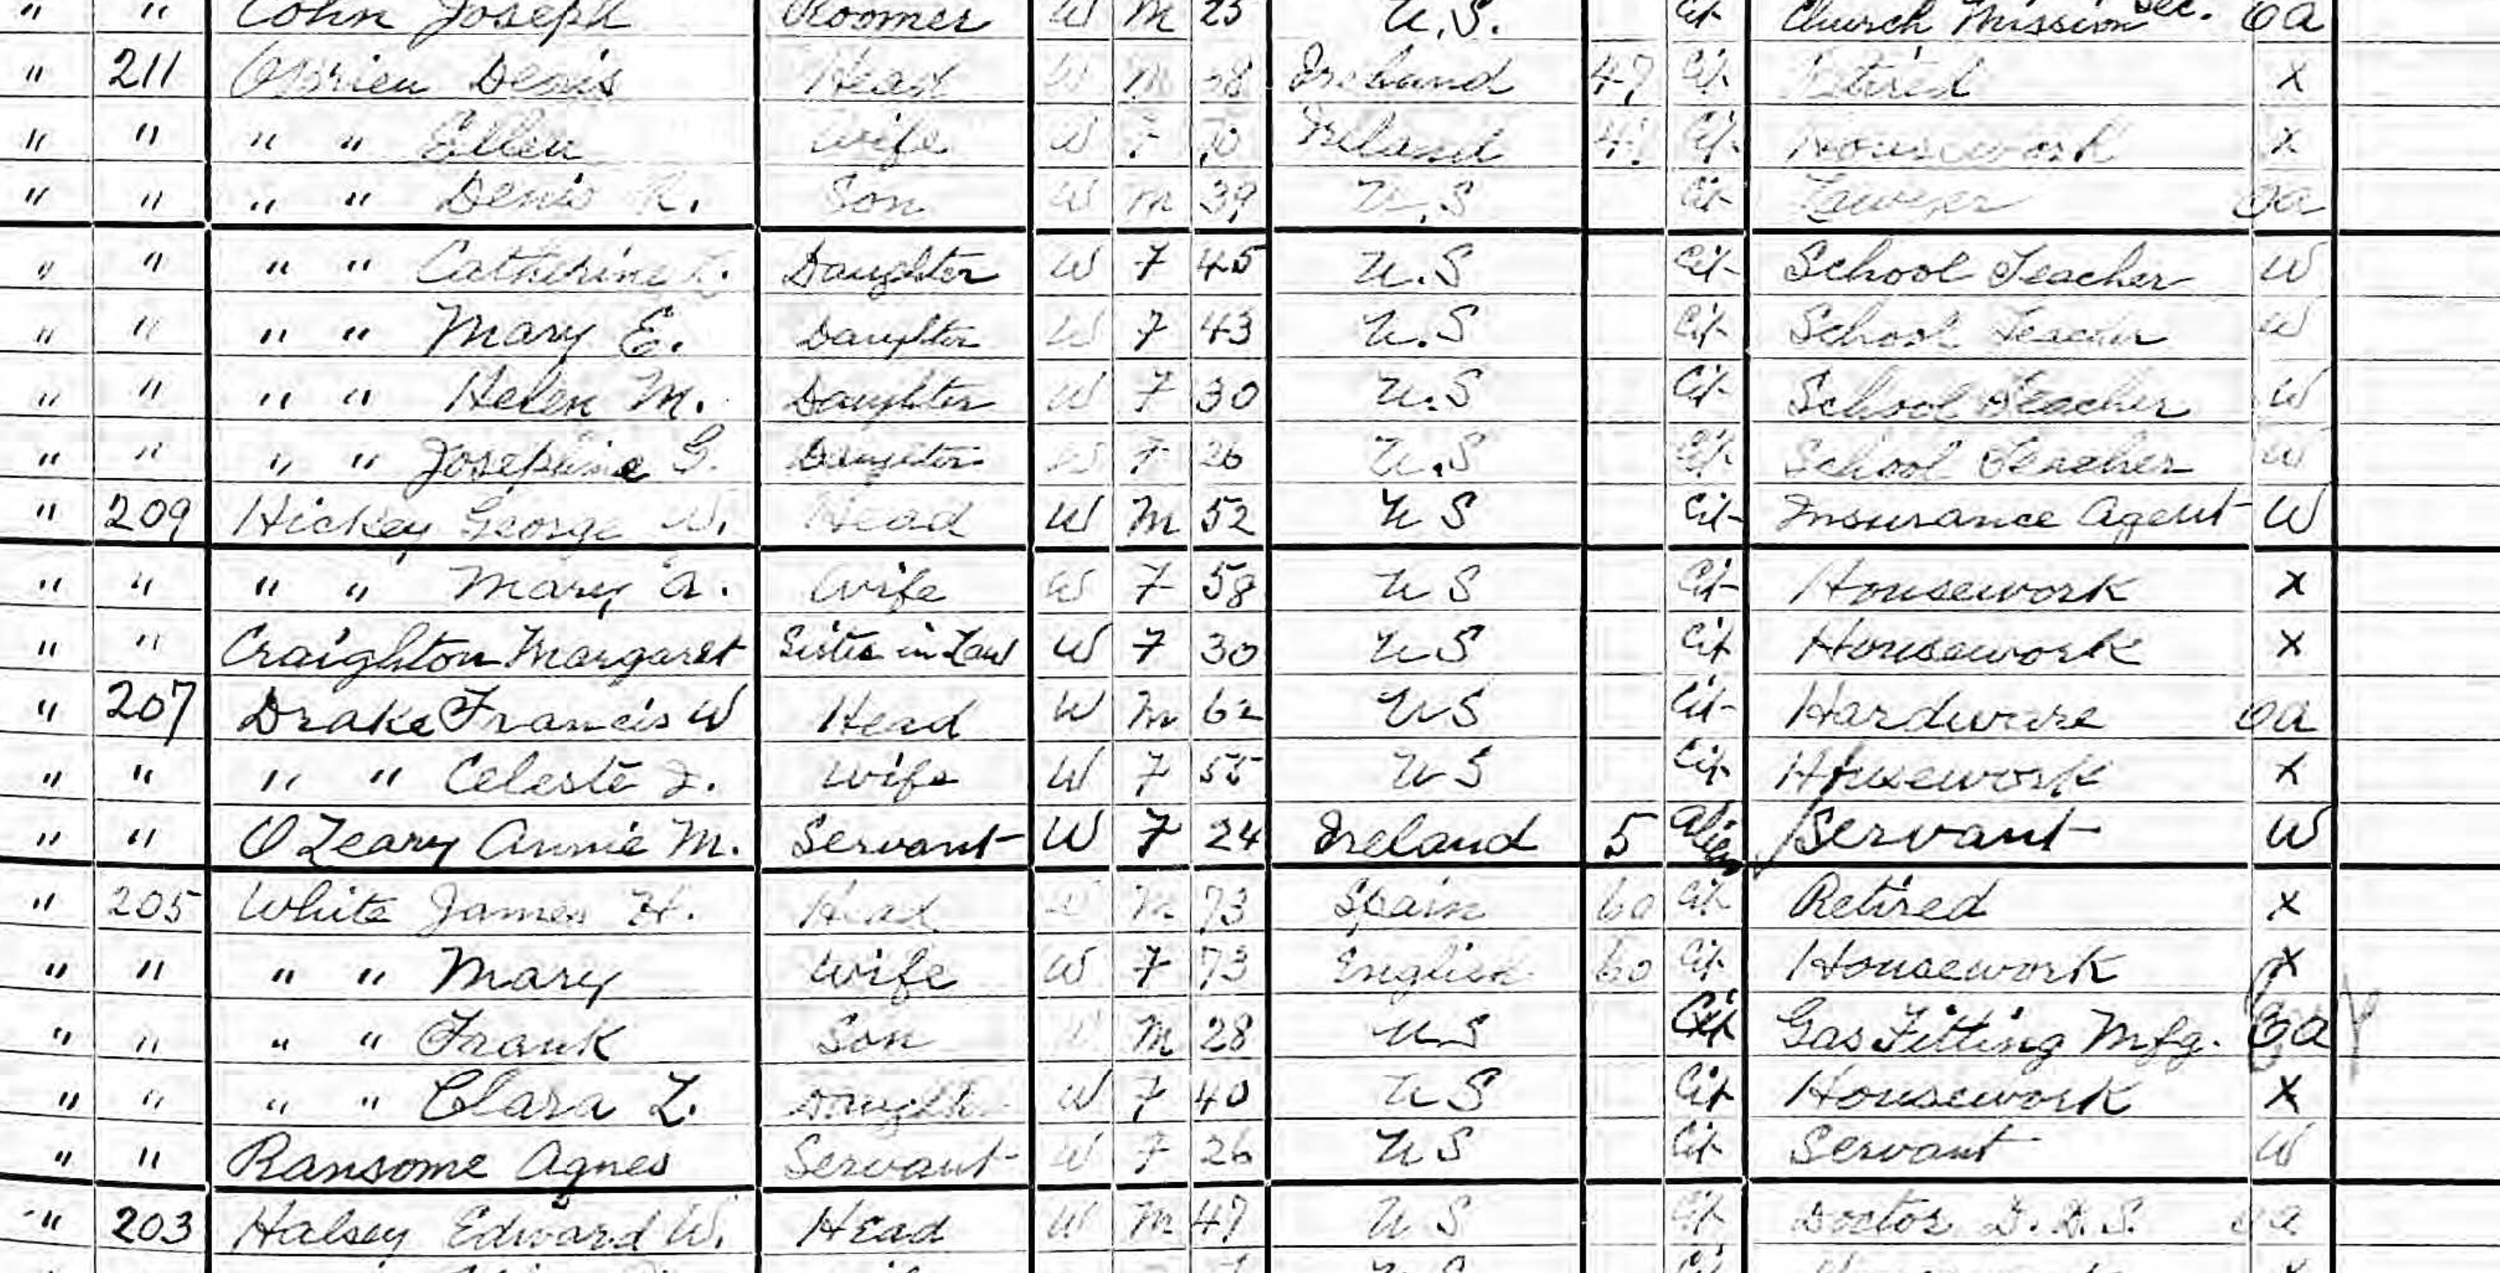 " " Cohn Joseph Roomer W M 25 U.S. Cit Church Mission Sec. Oa
" 211 OBrien Denis Head W M 68 Ireland 47 Cit Retired x
" " " " Ellen Wife W F 70 Ireland Cit Housework x
" " " " Denis R. Son W M 39 U.S Cit Lawyer Oa
" " " " Catherine Daughter W F 45 U.S Cit School Teacher W
" " " " Mary E. Daughter W F 43 U.S Cit School Teacher W
" " " " Helen M. Daughter W F 30 U.S Cit School Teacher W
" " " " Josephine G. Daughter W F 26 U.S Cit School Teacher W
" 209 Hickey George W. Head W M 52 U S Cit Insurance Agent W
" " " " Mary A. Wife W F 58 U S Cit Housework x
" " Craighton Margaret Sister in Law W F 30 U S Cit Housework x
" 207 Drake Francis W Head W M 62 U S Cit Hardware Oa
" " " " Celeste I. Wife W F 55 U S Cit Housework x
" " O Leary Annie M. Servant W F 24 Ireland 5 Alien Servant W
" 205 White James H. Head W M 73 Spain 60 Cit Retired x
" " " " Mary Wife W F 73 English 60 Cit Housework x
" " " " Frank Son W M 28 U S Cit Gas Fitting Mfg. Oa
" " " " Clara L. Daughter W F 40 U S Cit Housework x
" " Ransome Agnes Servant W F 26 U S Cit Servant W
" 203 Halsey Edward W. Head W M 47 U S Cit Doctor D.D.S. Oa